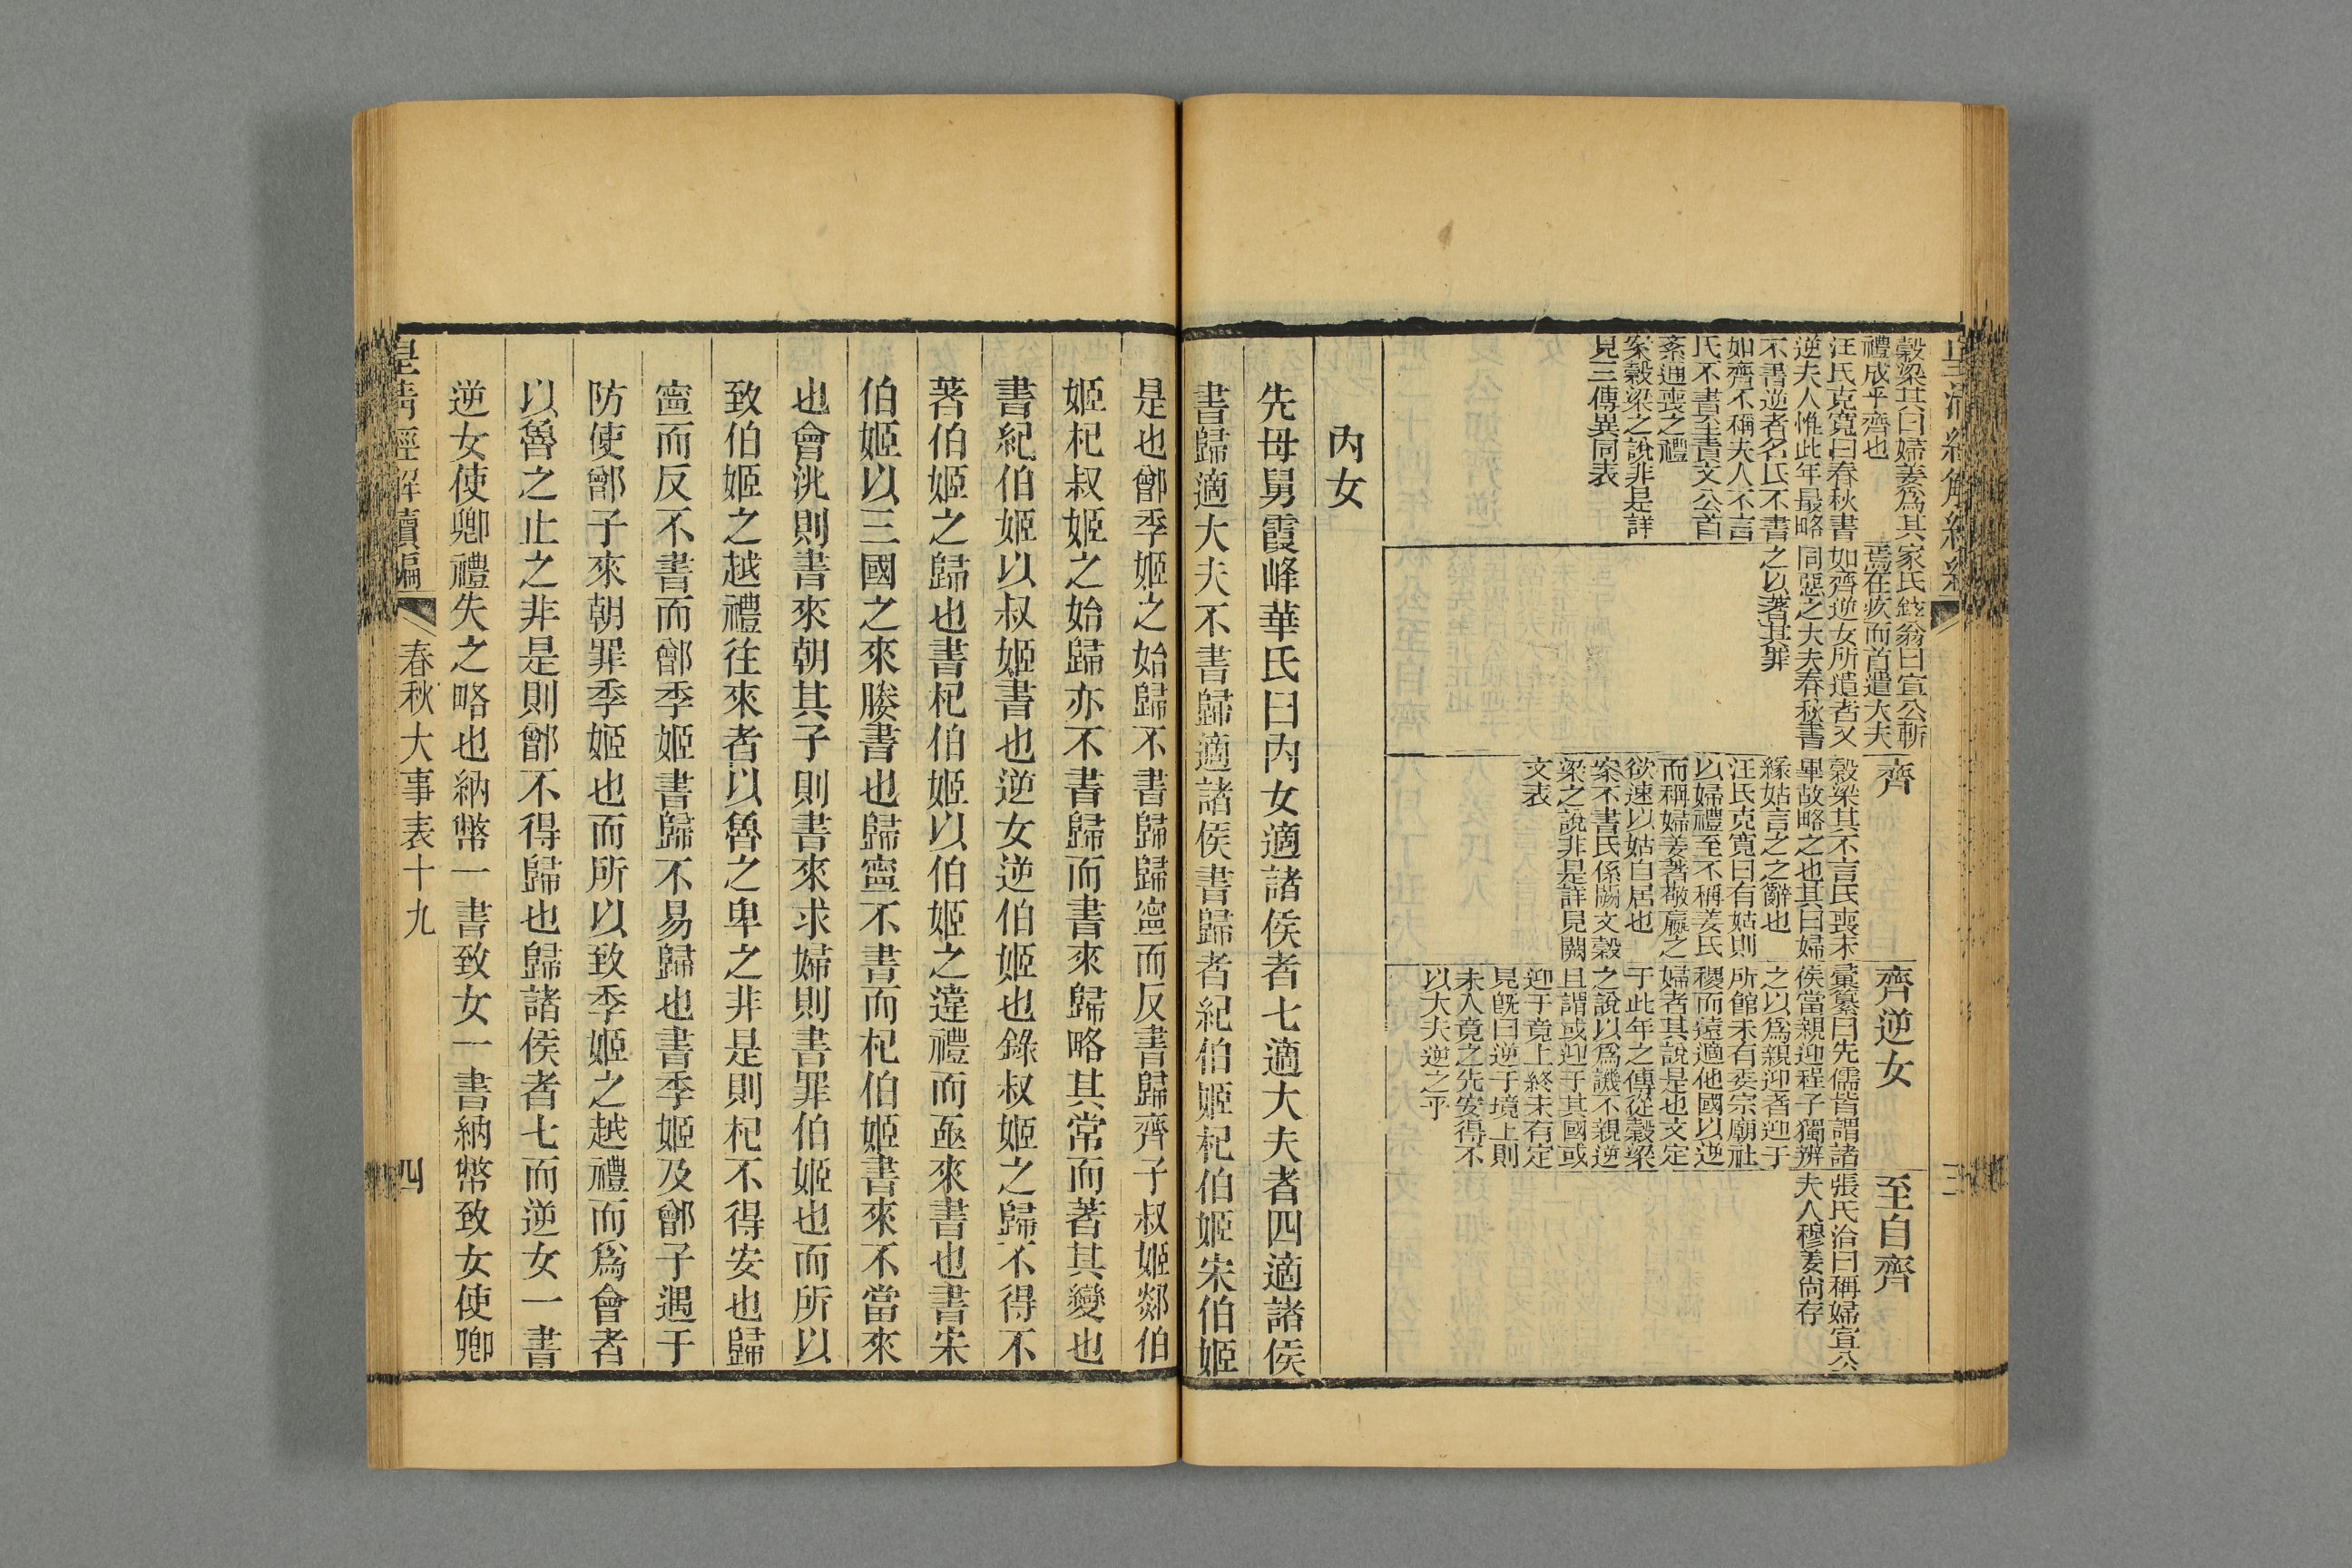 穀梁其曰婦姜爲其
禮成乎齊也
汪氏克寬曰春秋書
逆夫人惟此年最略
不書逆者名氏不書
如齊不稱夫人不言
氏不書至責文公首
紊通喪之禮
案穀梁之說非是詳
見三傳異同表
家氏鉉翁曰宣公斬
焉在疚而首遣大夫
如齊逆女所遣者又
同惡之大夫春秋書
之以著其罪
齊
穀梁其不言氏喪未
畢故略之也其曰婦
緣姑言之之辭也
汪氏克寬曰有姑則
以婦禮至不稱姜氏
而稱婦姜著敬嬴之
欲速以姑自居也
案不書氏係闕文穀
梁之說非是詳見闕
文表
齊逆女
彙纂曰先儒皆謂諸
侯當親迎程子獨辨
之以爲親迎者迎于
所館未有委宗廟社
稷而遠適他國以逆
婦者其說是也文定
于此年之傳從穀梁
之說以爲譏不親逆
且謂或迎于其國或
迎于竟上終未有定
見旣曰逆于境上則
未入竟之先安得不
以大夫逆之乎
至自齊
張氏洽曰稱婦宣公
夫人穆姜尙存
內女
先母舅霞峰華氏曰內女適諸侯者七適大夫者四適諸侯
書歸適大夫不書歸適諸侯書歸者紀伯姬杞伯姬宋伯姬
三
是也鄫季姬之始歸不書歸歸寧而反書歸齊子叔姬郯伯
姬杞叔姬之始歸亦不書歸而書來歸略其常而著其變也
書紀伯姬以叔姬書也逆女逆伯姬也錄叔姬之歸不得不
著伯姬之歸也書杞伯姬以伯姬之違禮而亟來書也書宋
伯姬以三國之來媵書也歸寧不書而杞伯姬書來不當來
也會洮則書來朝其子則書來求婦則書罪伯姬也而所以
致伯姬之越禮往來者以魯之卑之非是則杞不得安也歸
寧而反不書而鄫季姬書歸不易歸也書季姬及鄫子遇于
防使鄫子來朝罪季姬也而所以致季姬之越禮而爲會者
以魯之止之非是則鄫不得歸也歸諸侯者七而逆女一書
逆女使卿禮失之略也納幣一書致女一書納幣致女使卿
皇淸經解續編
春秋大事表十九
四